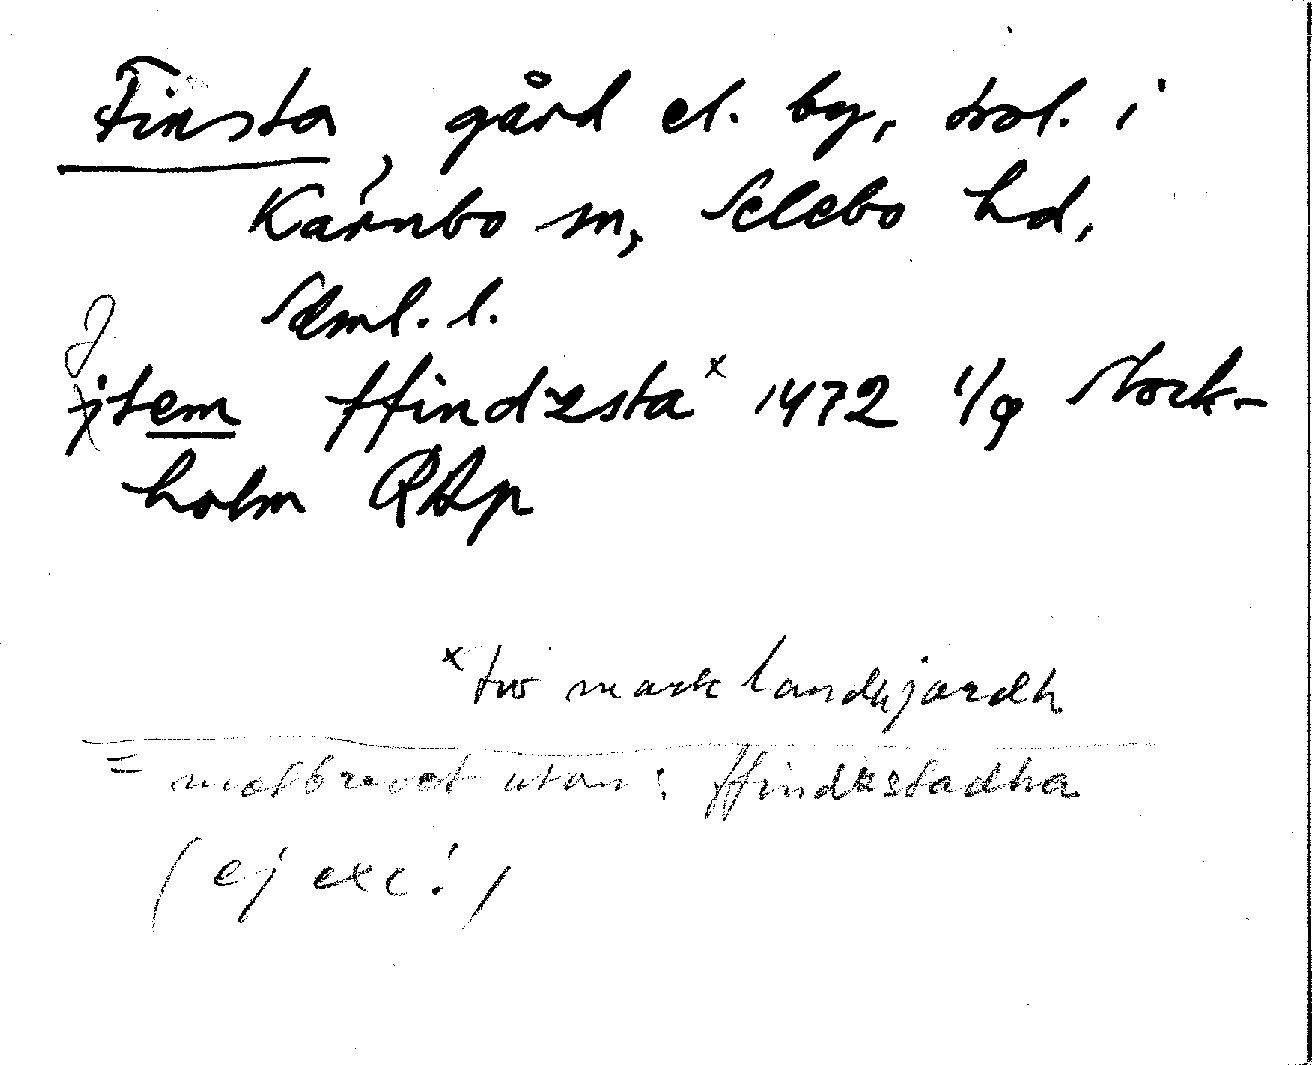 Finsta, gård el. by, trol. i
Kärnbo sn, Selebo hd,
Sdml. l.
jtem ffindzsta x 1472 1/9 Stock-
holm RAp
x tw mark landhjordh
= motbrevet utan: ffindzstadha
(ej exc!)